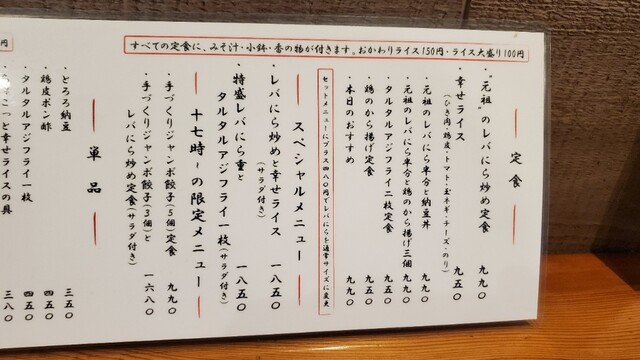 すべての定食に、みそ汁・小鉢・香の物が付きます。おかわりライス150円・ライス大盛り100円
定食
・"元祖"のレバにら炒め定食 九九〇
・幸せライス 九五〇
(ひき肉・鶏皮・トマト・玉ネギ・チーズ・のり)
・元祖のレバにら半分と納豆丼 九九〇
・元祖のレバにら半分と鶏のから揚げ三個 九九〇
・タルタルアジフライ二枚定食 九五〇
・鶏のから揚げ定食 九五〇
・本日のおすすめ 九九〇
セットメニューにプラス四八〇円でレバにらを通常サイズに変更
スペシャルメニュー
・レバにら炒めと幸せライス 一八五〇
(サラダ付き)
・特盛レバにら重と
タルタルアジフライ一枚(サラダ付き) 一八五〇
十七時~の限定メニュー
・手づくりジャンボ餃子(5個)定食 九九〇
・手づくりジャンボ餃子(3個)と
レバにら炒め定食(サラダ付き) 一六八〇
単品
・とろろ納豆 三五〇
・鶏皮ポン酢 四五〇
・タルタルアジフライ一枚 四五〇
こっと幸せライスの具 三八〇
円